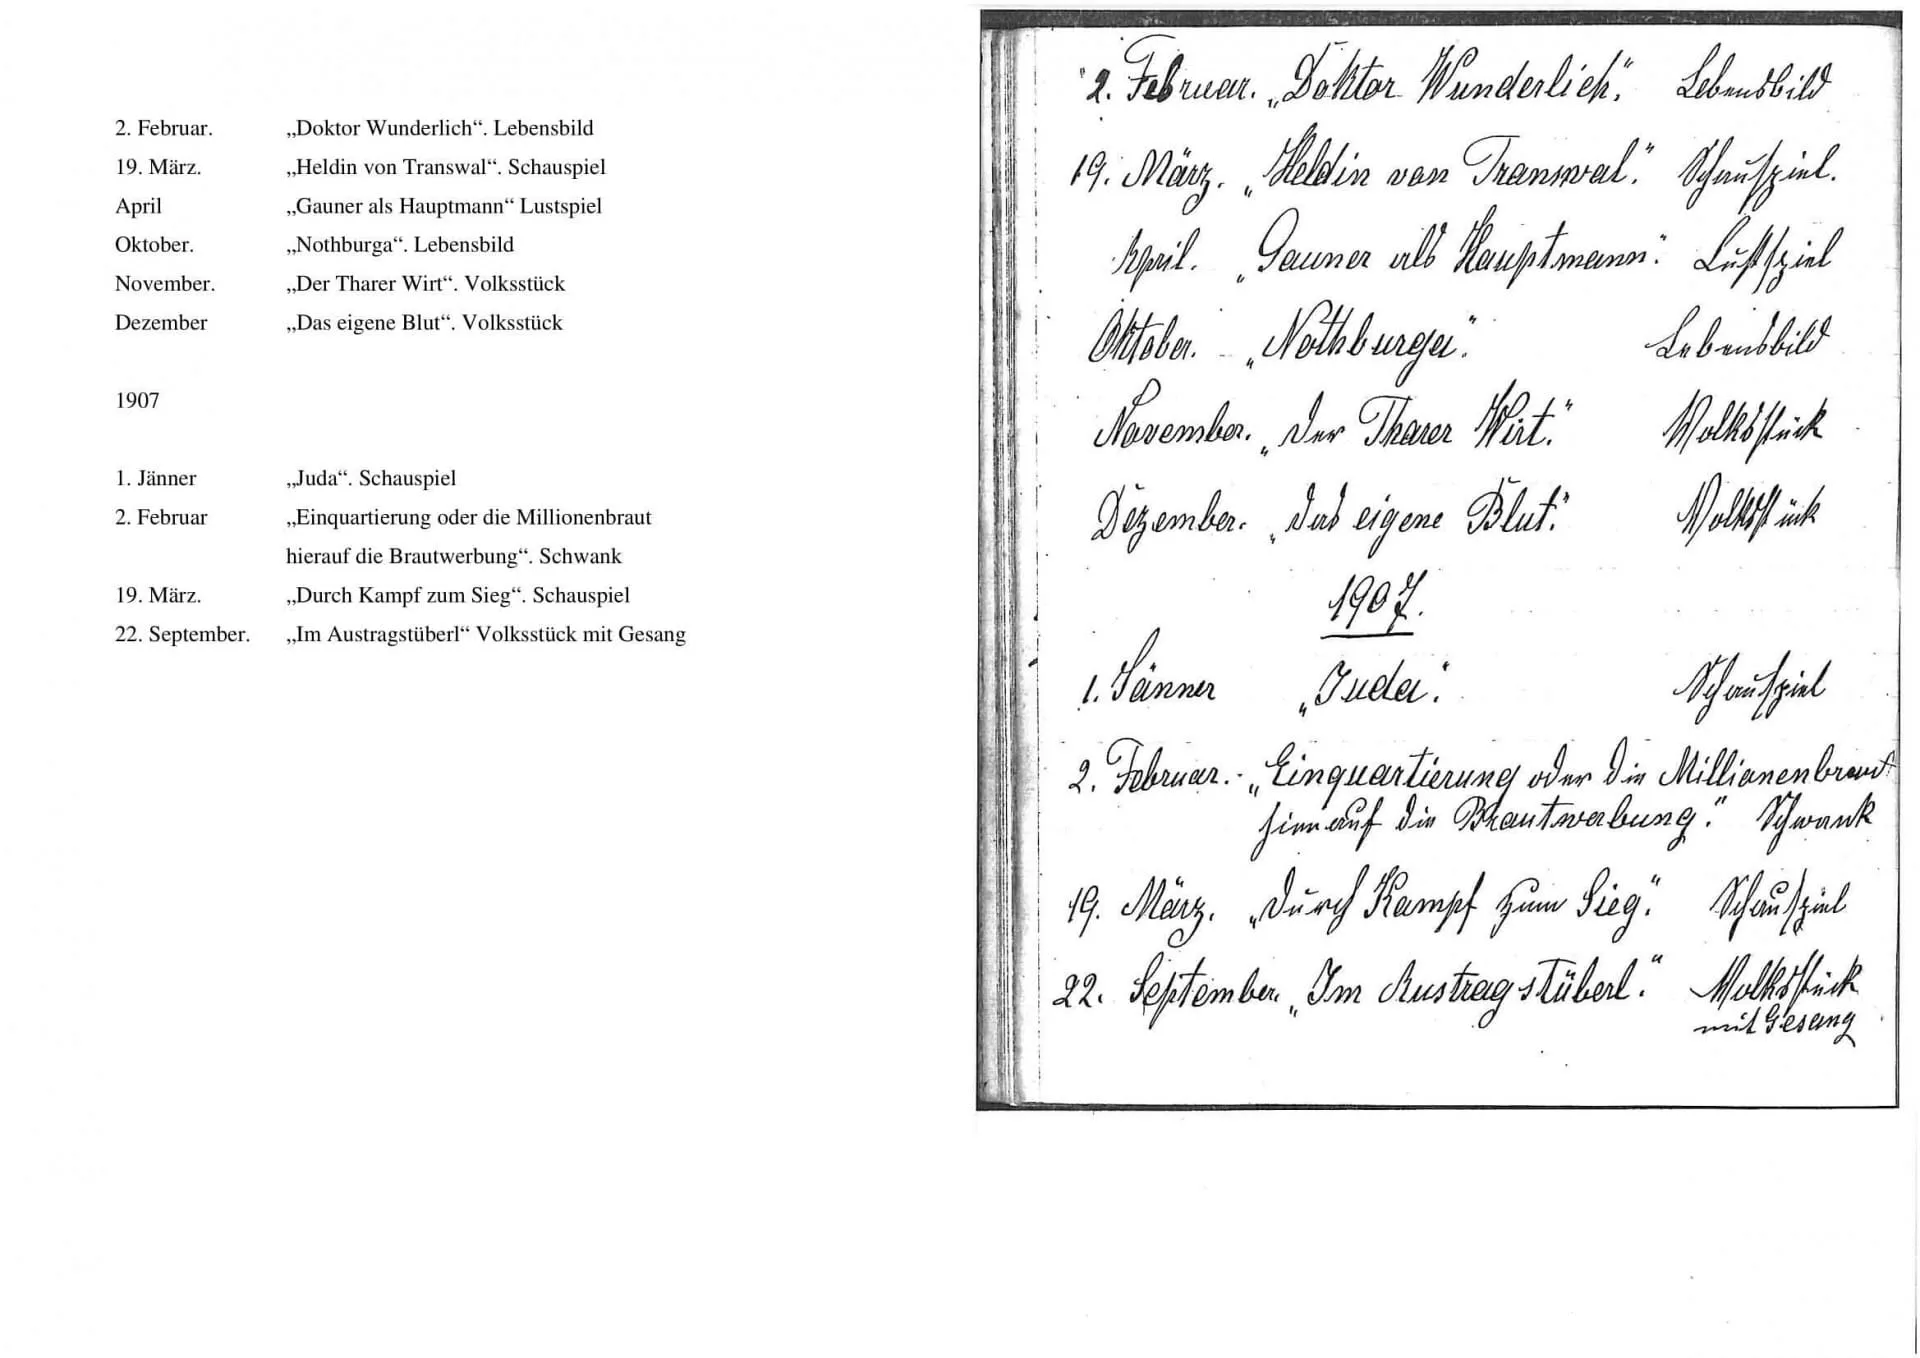 2. Februar. „Doktor Wunderlich“. Lebensbild
19. März. „Heldin von Transwal“. Schauspiel
April „Gauner als Hauptmann“ Lustspiel
Oktober. „Nothburga“. Lebensbild
November. „Der Tharer Wirt“. Volksstück
Dezember „Das eigene Blut“. Volksstück
1907
1. Jänner „Juda“. Schauspiel
2. Februar „Einquartierung oder die Millionenbraut
hierauf die Brautwerbung“. Schwank
19. März. „Durch Kampf zum Sieg“. Schauspiel
22. September. „Im Austragstüberl“ Volksstück mit Gesang
2. Februar. „Doktor Wunderlich“. Lebensbild
19. März. „Heldin von Transwal“. Schauspiel.
April. „Gauner als Hauptmann“. Lustspiel
Oktober. „Nothburga“. Lebensbild
November. „Der Tharer Wirt“. Volksstück
Dezember. „Das eigene Blut“. Volksstück
1907.
1. Jänner „Juda“. Schauspiel
2. Februar. „Einquartierung oder die Millionenbraut
hierauf die Brautwerbung“. Schwank
19. März. „Durch Kampf zum Sieg“. Schauspiel
22. September. „Im Austragstüberl“. Volksstück
mit Gesang